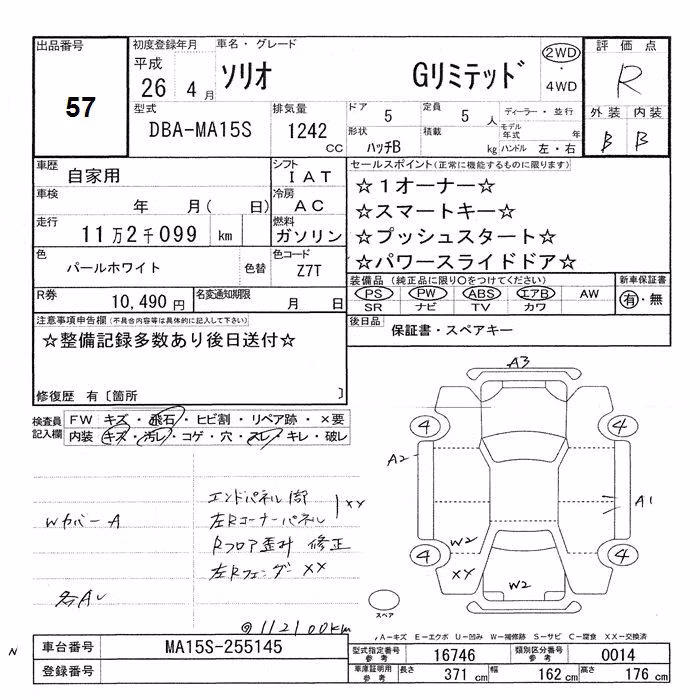 出品番号
57
初度登録年月
平成
26 4月
車名・グレード
ソリオ Gリミテッド
2WD
・
4WD
評価点
R
外装 内装
B B
型式
DBA-MA15S
排気量
1242
CC
ドア
5
定員
5人
形状
ハッチB
積載
kg
ディーラー・並行
モデル
年式 年
ハンドル 左・右
車歴
自家用
シフト
IAT
車検
年 月( 日)
冷房
AC
走行
11万2千099 km
燃料
ガソリン
色
パールホワイト
色替
色コード
Z7T
R券
10,490円
名変通知期限
月 日
セールスポイント(正常に機能するものに限ります)
☆1オーナー☆
☆スマートキー☆
☆プッシュスタート☆
☆パワースライドドア☆
装備品(純正品に限り〇をつけてください)
新車保証書
PS PW ABS エアB AW
SR ナビ TV カワ
有・無
後日品
保証書・スペアキー
注意事項申告欄(不具合内容等は具体的に記入して下さい)
☆整備記録多数あり後日送付☆
修復歴 有〔箇所 〕
検査員
記入欄
FW キズ・飛石・ヒビ割・リペア跡・×要
内装 キズ・汚レ・コゲ・穴・スレ・キレ・破レ
Wカバー A
各A
エンドパネル
左Rコーナーパネル
XX
Rフロア歪み 修正
左Rフェンダー XX
@112100km
A3
4 4
A2
A1
W2
4 4
XX
W2
スペア
A-キズ E-エクボ U-凹み W-補修跡 S-サビ C-腐食 XX-交換済
N
車台番号
MA15S-255145
登録番号
型式指定番号
参考
16746
類別区分番号
参考
0014
車庫証明用
参考
長さ
371 cm
幅
162 cm
高さ
176 cm